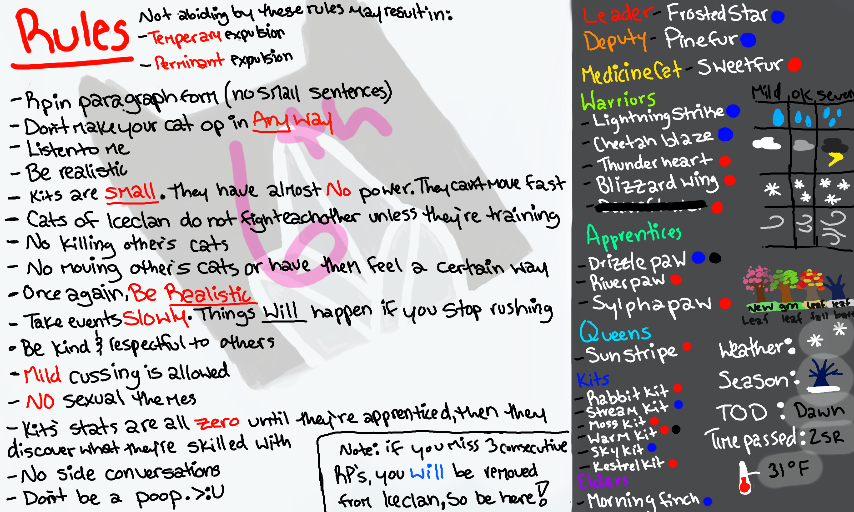 Rules
Not abiding by these rules may result in:
-Temperary expulsion
-Perminant expulsion
-Rp in paragraph form (no small sentences)
-Don't make your cat op in Any way
-Listen to me
-Be realistic
-Kits are small. They have almost No power. They can't move fast
-Cats of Iceclan do not fight eachother unless they're training
-No killing other's cats
-No moving other's cats or have them feel a certain way
-Once again, Be Realistic
-Take events Slowly. Things Will happen if you stop rushing
-Be kind & respectful to others
-Mild cussing is allowed
-NO sexual themes
-Kits' stats are all zero until they're apprenticed, then they
discover what they're skilled with
-No side conversations
-Don't be a poop. >:U
Note: if you miss 3 consecutive
RP's, you will be removed
from Iceclan, So be here!
Leader- FrostedStar
Deputy- Pinefur
Medicine Cat- Sweetfur
Warriors
-Lightning Strike
-Cheetah blaze
-Thunder heart
-Blizzard wing
Apprentices
-Drizzle paw
-River paw
-Sylpha paw
Queens
-Sun stripe
Kits
-Rabbit kit
-Stream kit
-Moss kit
-Warm kit
-Sky kit
-Kestrel kit
Elders
-Morning finch
Mild, OK, severe
New grn leaf
Leaf leaf fall bare
Weather:
Season:
TOD: Dawn
Time passed: 2SR
31°F